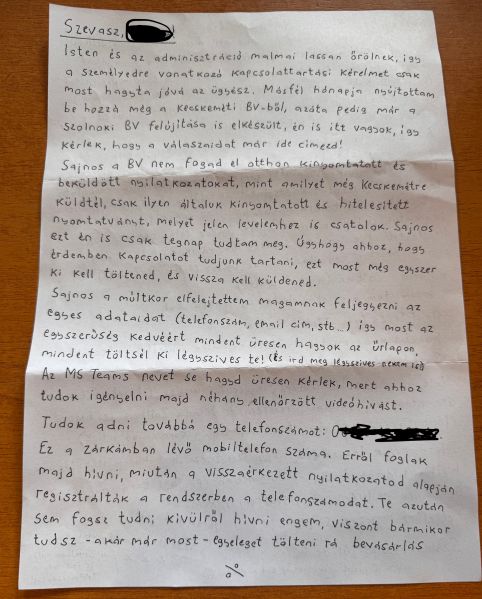 Szevasz,
Isten és az adminisztráció malmai lassan őrölnek, így
a személyedre vonatkozó kapcsolattartási kérelmet csak
most hagyta jóvá az ügyész. Másfél hónapja nyújtottam
be hozzá még a Kecskeméti BV-ből, azóta pedig már a
Szolnoki BV felújítása is elkészült, én is itt vagyok, így
kérlek, hogy a válaszaidat már ide címezd!
Sajnos a BV nem fogad el otthon kinyomtatott és
beküldött nyilatkozatokat, mint amilyet még Kecskemétre
küldtél, csak ilyen általuk kinyomtatott és hitelesített
nyomtatványt, melyet jelen levelemhez is csatolok. Sajnos
ezt én is csak tegnap tudtam meg. Úgyhogy ahhoz, hogy
érdemben kapcsolatot tudjunk tartani, ezt most még egyszer
ki kell töltened, és vissza kell küldened.
Sajnos a múltkor elfelejtettem magamnak feljegyezni az
egyes adataidat (telefonszám, email cím, stb...) így most az
egyszerűség kedvéért mindent üresen hagyok az űrlapon,
mindent töltsél ki légyszíves te! (és írd meg légyszíves nekem is!)
Az MS Teams nevet se hagyd üresen kérlek, mert ahhoz
tudok igényelni majd néhány ellenőrzött videóhívást.
Tudok adni továbbá egy telefonszámot: 0
Ez a zárkámban lévő mobiltelefon száma. Erről foglak
majd hívni, miután a visszaérkezett nyilatkozatod alapján
regisztrálták a rendszerben a telefonszámodat. Te azután
sem fogsz tudni kívülről hívni engem, viszont bármikor
tudsz - akár már most - egyeleget tölteni rá bevásárlás